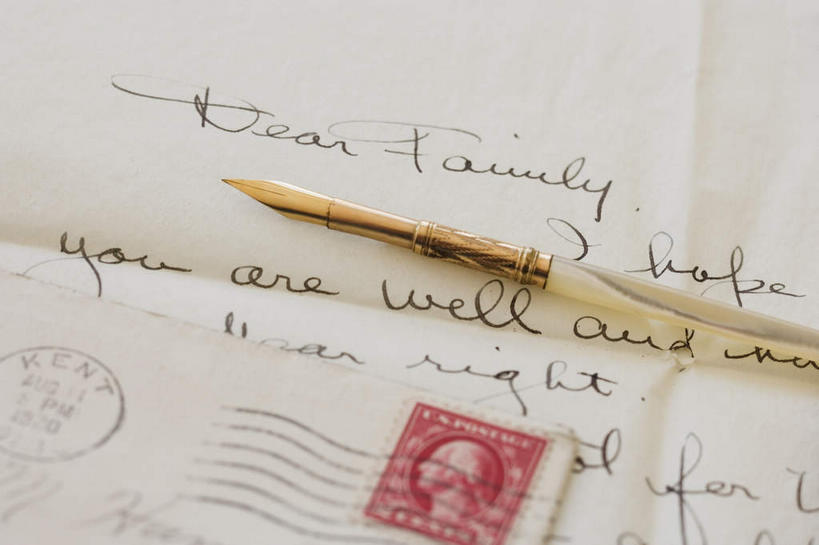 Dear Family
I hope
you are well and
right.
for
KENT
AUG 11
PM
1920
U.S. POSTAGE
CENTS